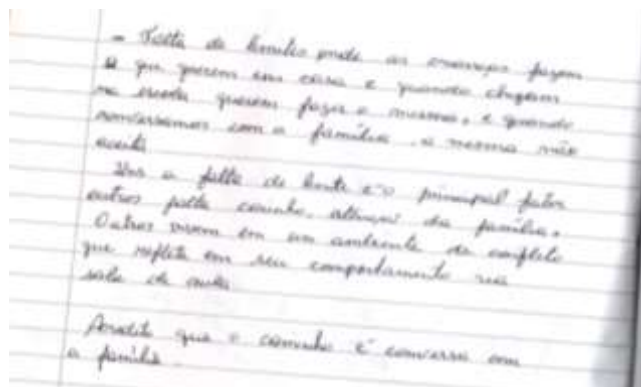 - Falta de limites onde as crianças fazem
o que querem em casa e quando chegam
na escola querem fazer o mesmo, e quando
conversamos com a família, a mesma não
aceita
Uns a falta de limite é o principal fator
outros falta carinho, atenção da família.
Outros vivem em um ambiente de conflito
que reflete em seu comportamento na
sala de aula
Acredito que o caminho é conversa com
a família.